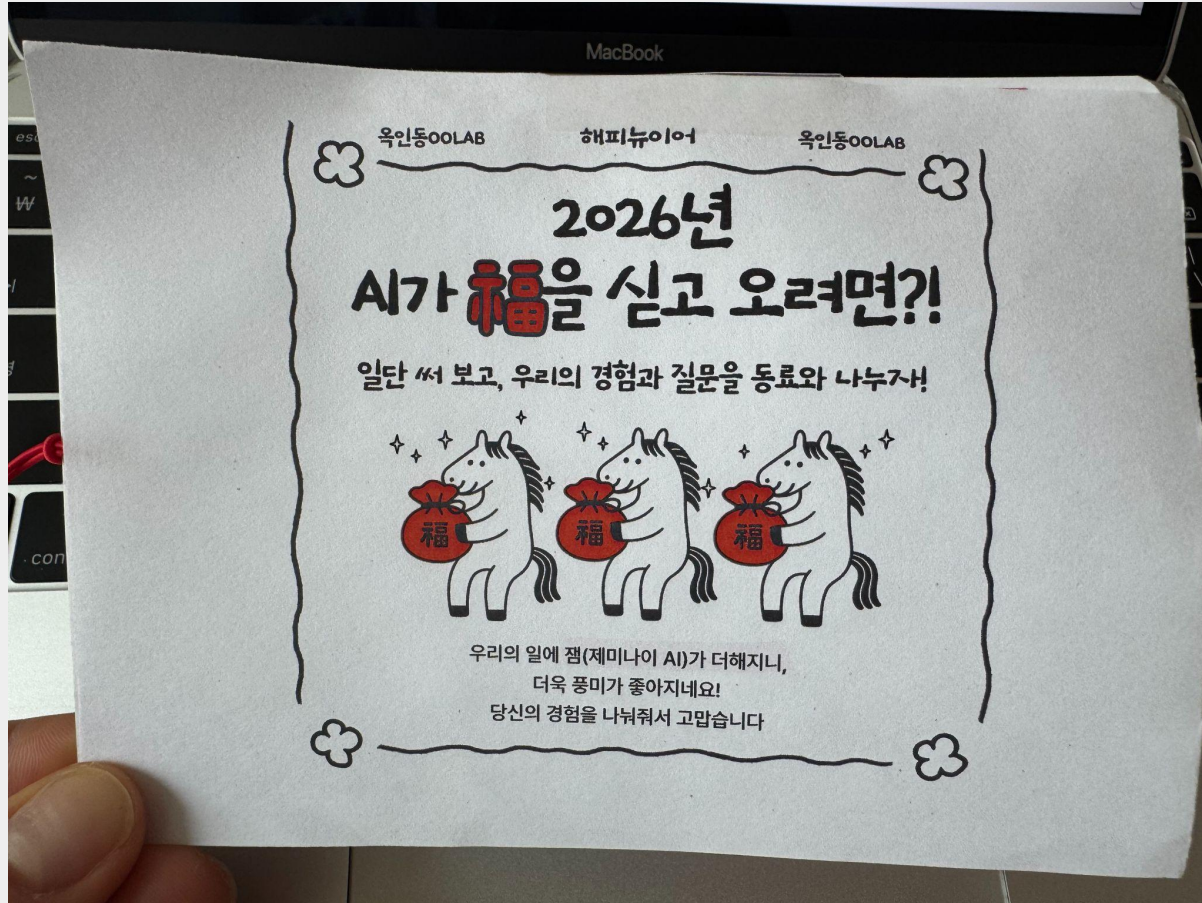 MacBook
esc
~
₩
con
옥인동OOLAB 해피뉴이어 옥인동OOLAB
2026년
AI가 福을 싣고 오려면?!
일단 써 보고, 우리의 경험과 질문을 동료와 나누자!
福 福 福
우리의 일에 잼(제미나이 AI)가 더해지니,
더욱 풍미가 좋아지네요!
당신의 경험을 나눠줘서 고맙습니다